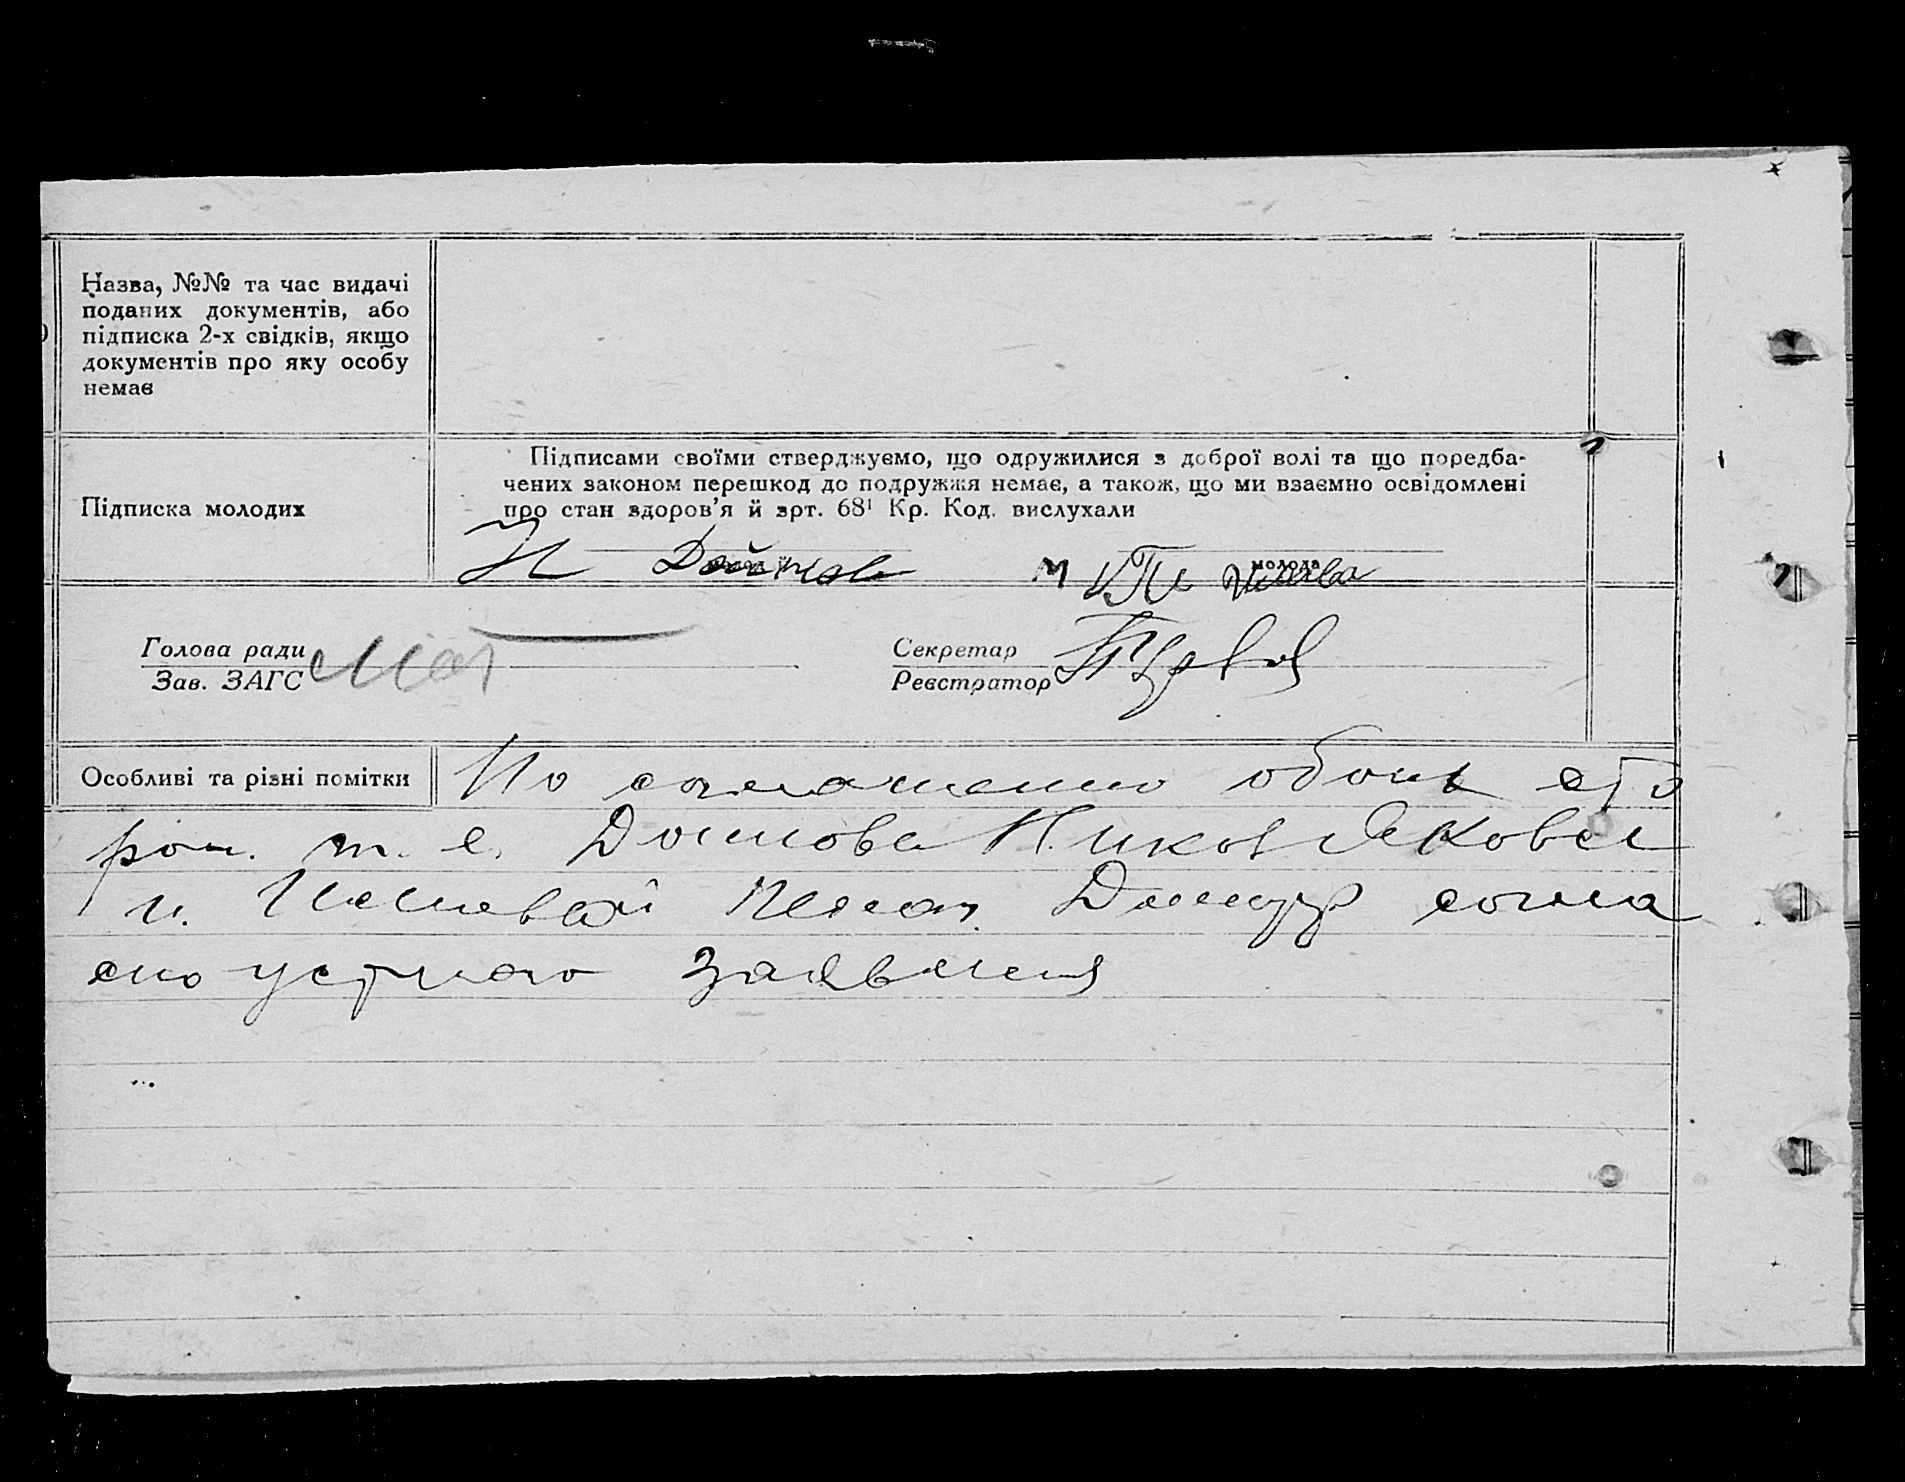 Назва, №№ та час видачі
поданих документів, або
підписка 2-х свідків, якщо
документів про яку особу
немає
Підписка молодих
Підписами своїми стверджуємо, що одружилися з доброї волі та що поредба-
чених законом перешкод до подружжя немає, а також, що ми взаємно освідомлені
про стан здоров’я й зрт. 68¹ Кр. Код. вислухали
молода
Голова ради
Зав. ЗАГС
Секретар
Реєстратор
Особливі та різні помітки
По соглашению обоих сто
рон. т. е.
и
согла
сно устного заявления